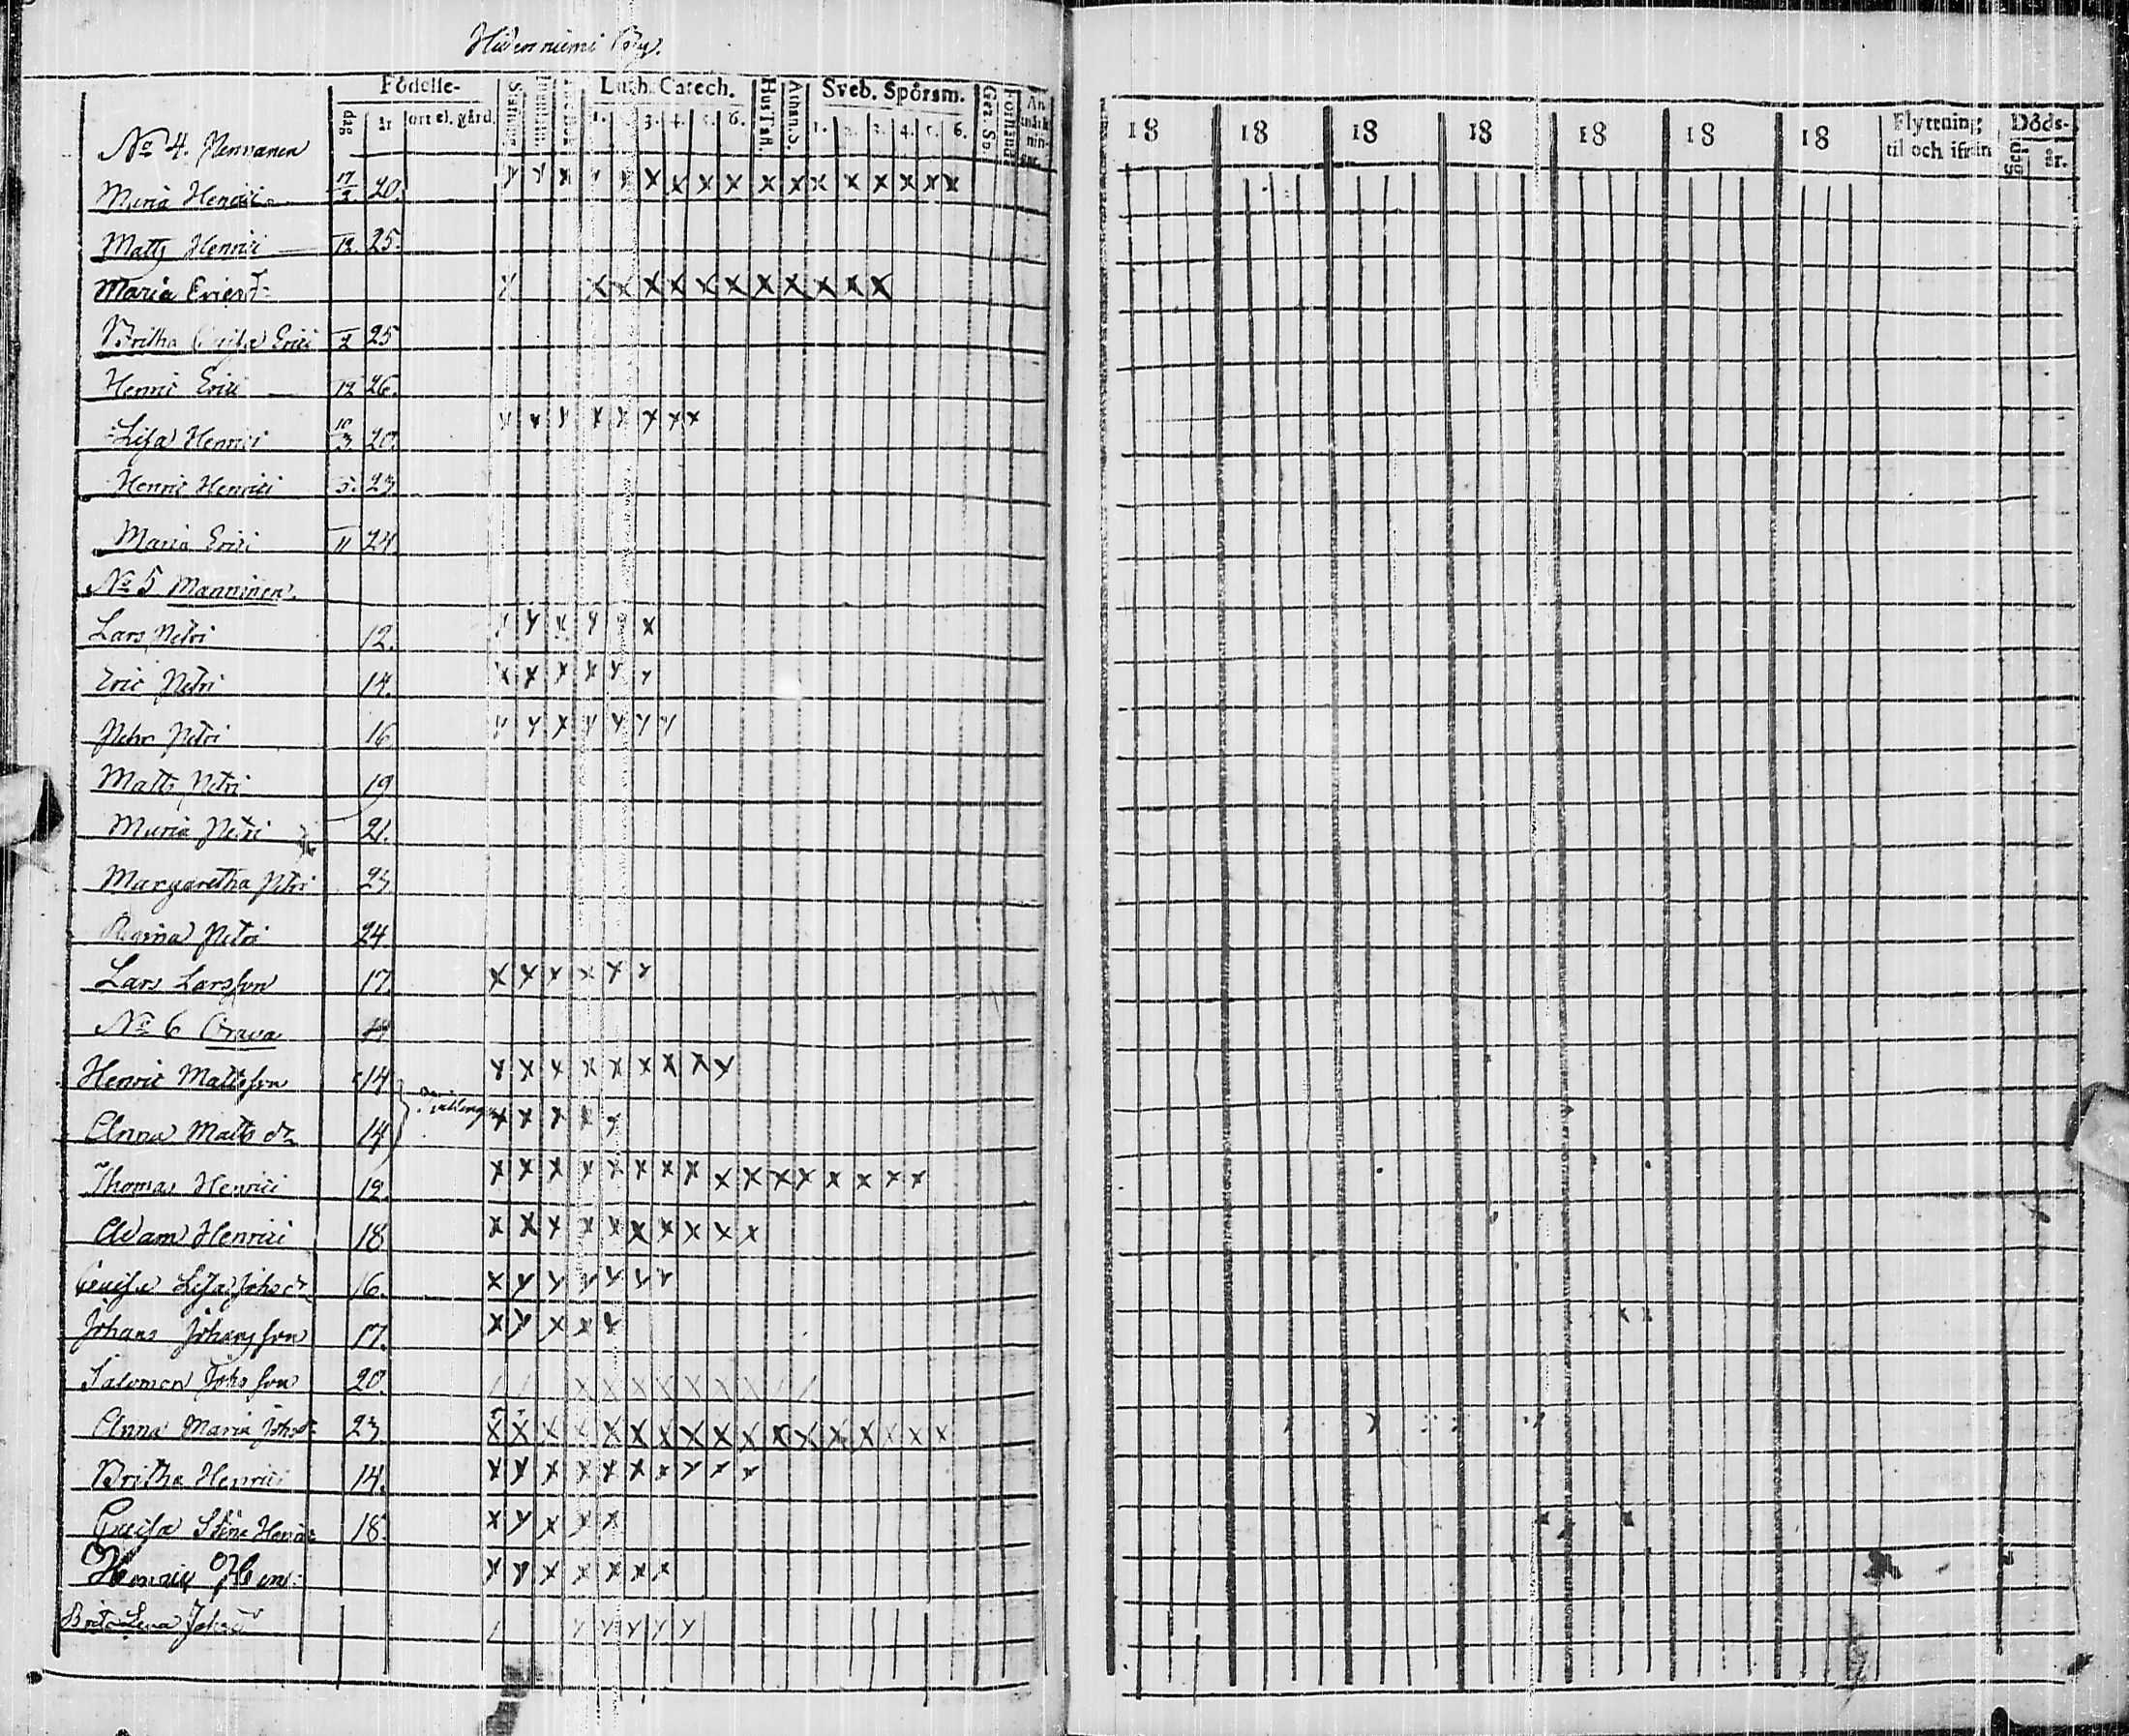 Hidenniemi By.
Födelse-
dag
år
ort el. gård.
Luth. Catech.
1. 3. 4. 5. 6.
Hus Tafl.
Athan. S.
Sveb. Spörsm.
1. 2. 3. 4. 5. 6.
Ger. Sb.
Förstånd
An märk nin- gar.
18 18 18 18 18 18 18
Flyttning til och ifrån
Döds-
dag
år.
No 4. Pennanen
Maria Henrici 17/2. 20.
Matts Henrici 12. 25.
Maria Ericsd:
Britha Caisa Erici 2 25
Henric Erici 12 26.
Lisa Henrici 10/3 20.
Henric Henrici 5. 23.
Maria Erici 11 24.
No 5 Manninen.
Lars Petri 12.
Eric Petri 14.
Pehr Petri 16
Matts Petri 19
Maria Petri 21.
Margaretha Petri 23
Regina Petri 24
Lars Larsson 17.
No 6 Orava
Henric Mattsson 14
Anna Matts dr 14
Thomas Henrici 12.
Adam Henrici 18
Caisa Lisa Johs dr 16.
Johans Johansson 17.
Salomon Johsson 20.
Anna Maria Johsdr 23
Britha Henrici 14.
Caisa Stina Henric 18.
Henric Hen:
Brita Lena Johsd